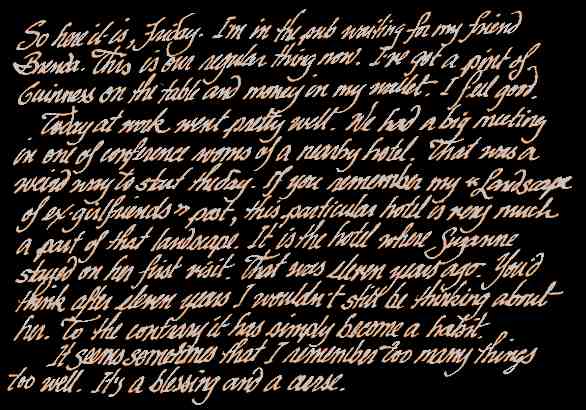 So here it is, Friday. I'm in the pub waiting for my friend
Brenda. This is our regular thing now. I've got a pint of
Guinness on the table and money in my wallet. I feel good.
Today at work went pretty well. We had a big meeting
in one of conference rooms of a nearby hotel. That was a
weird way to start the day. If you remember my "Landscape
of ex-girlfriends" post, this particular hotel is very much
a part of that landscape. It is the hotel where Suzanne
stayed on her first visit. That was eleven years ago. You'd
think after eleven years I wouldn't still be thinking about
her. To the contrary it has simply become a habit.
It seems sometimes that I remember too many things
too well. It's a blessing and a curse.